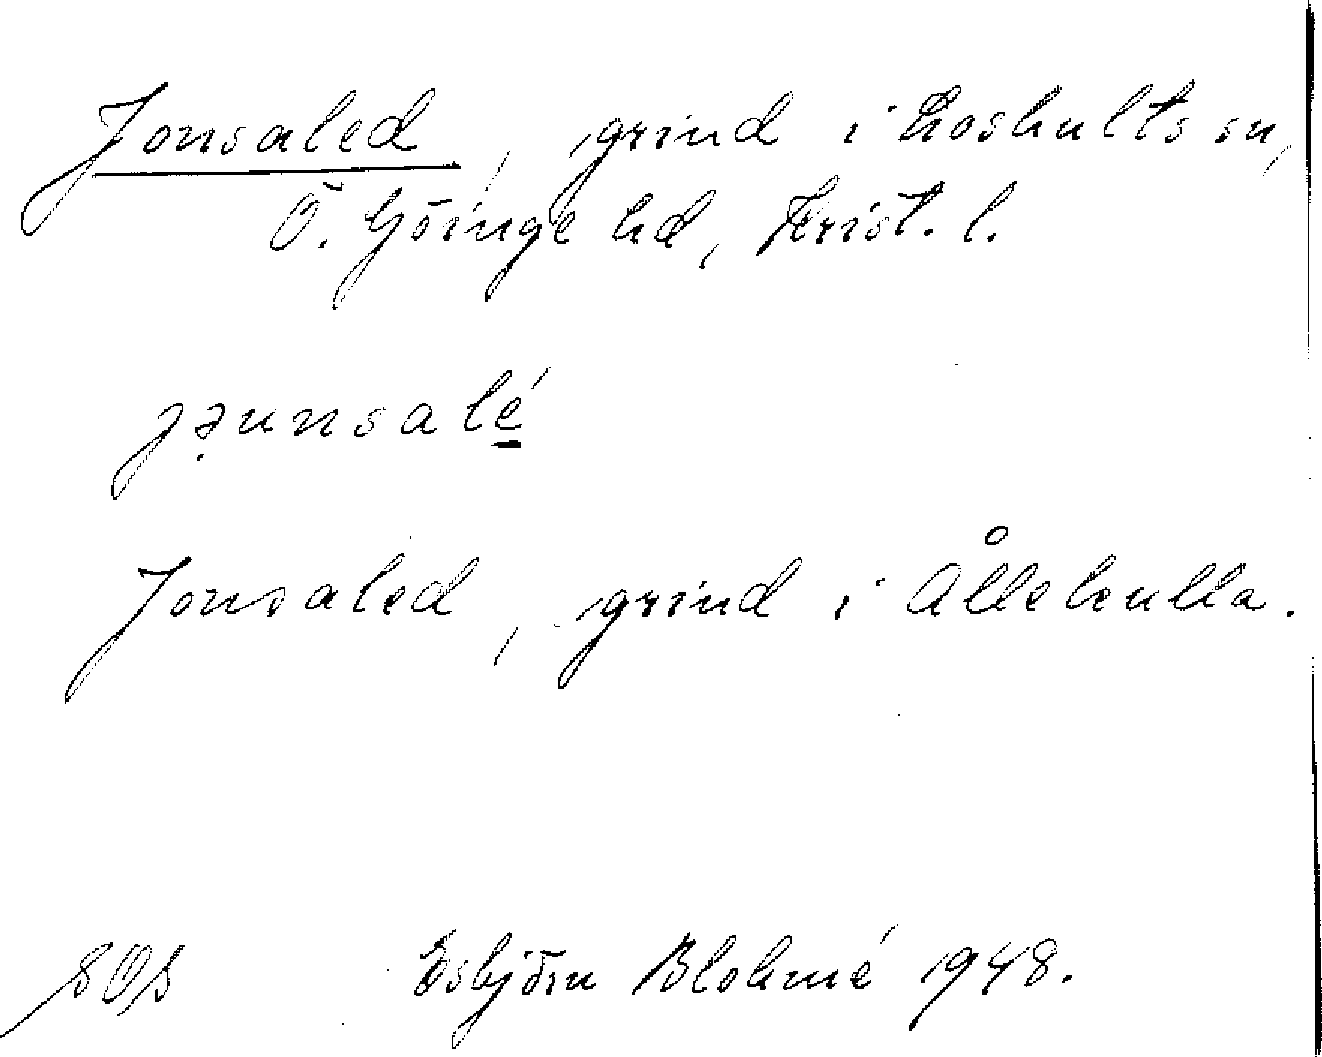 Jonsaled, grind i Loshults sn,
Ö. Göinge hd, Krist. l.
jə̣unsalé̲
Jonsaled, grind i Ållekulla.
SOS Esbjörn Blohmé 1948.